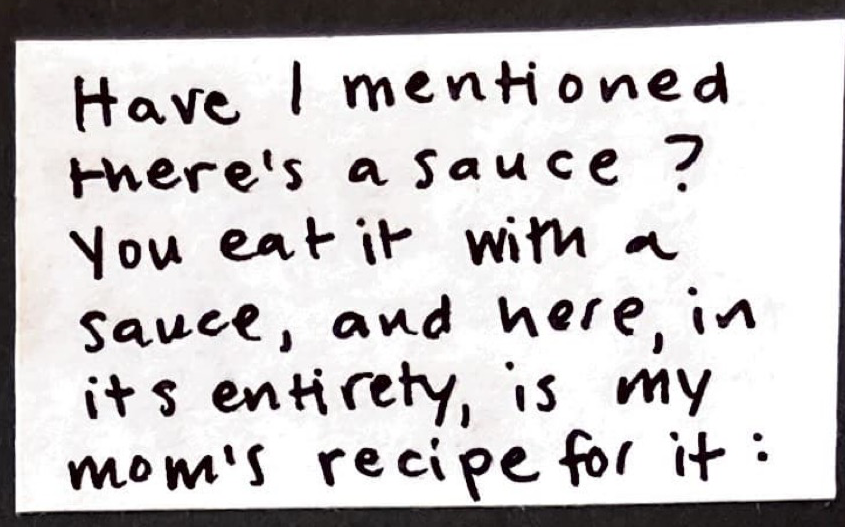 Have I mentioned
there's a sauce?
You eat it with a
sauce, and here, in
its entirety, is my
mom's recipe for it: